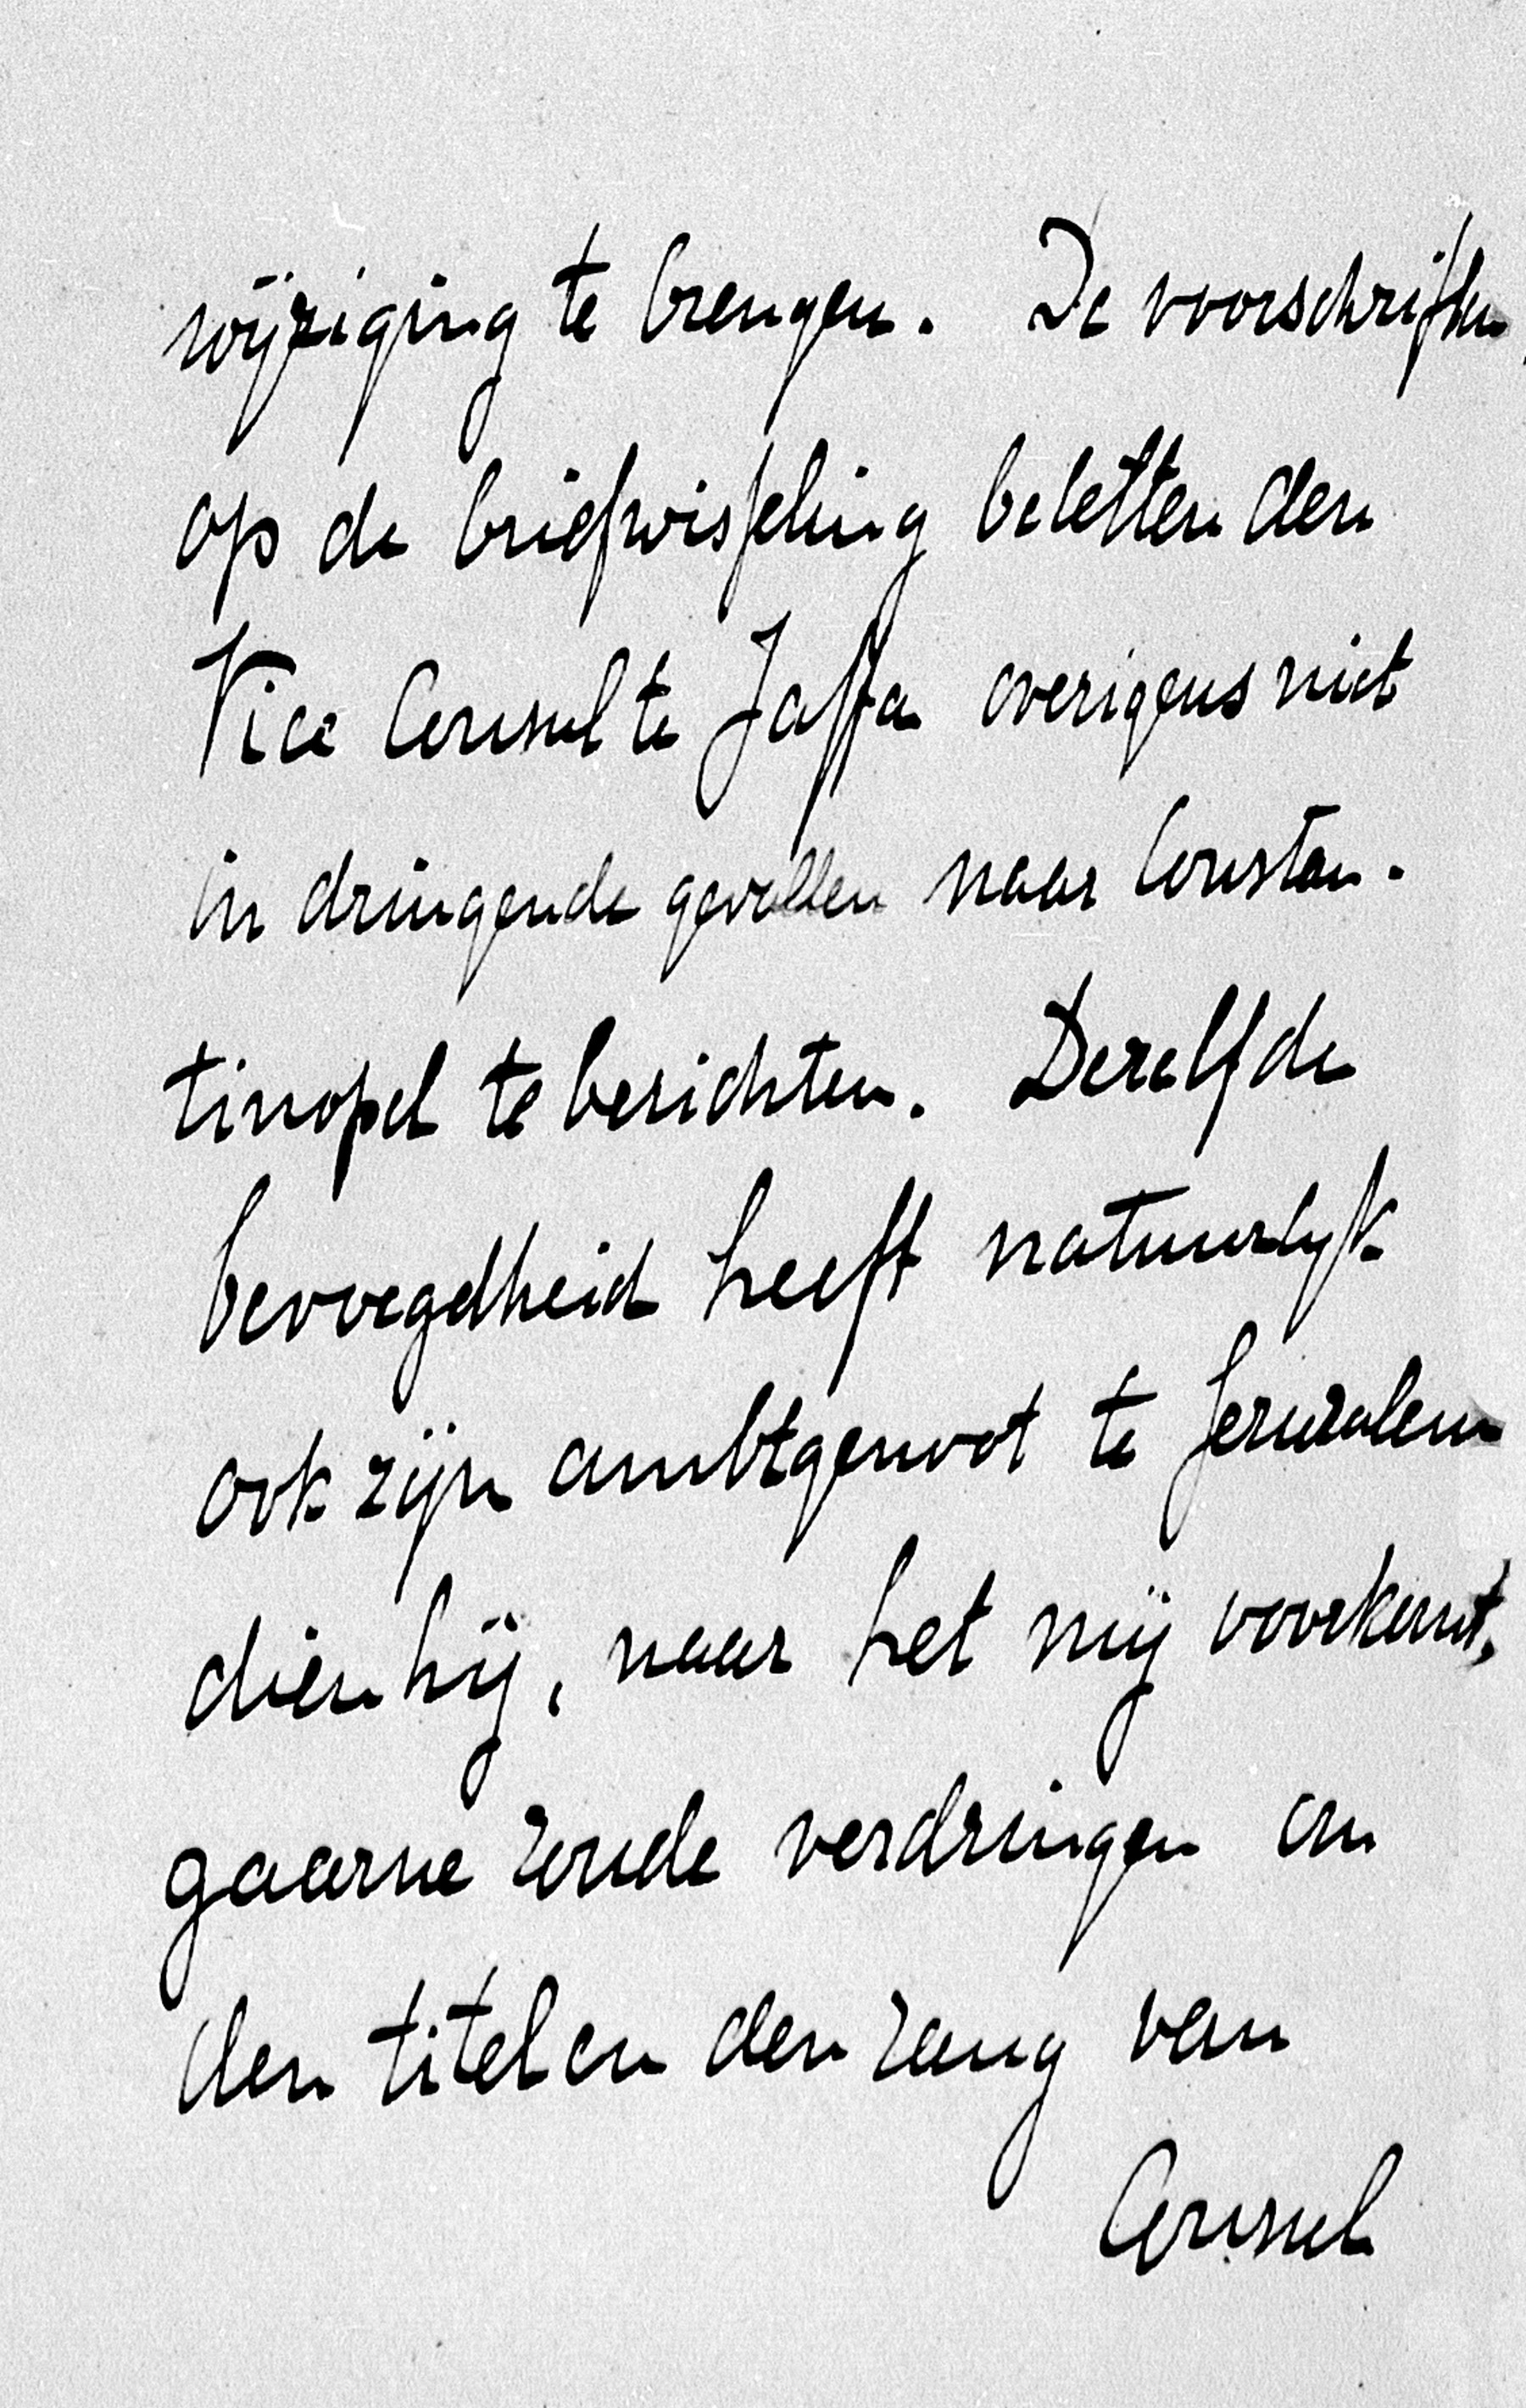 wijziging te brengen. De voorschriften
op de briefwisseling beletten den
Vice Consul te Jaffa overigens niet
in dringende gevallen naar Constan-
tinopel te berichten. Dezelfde
bevoegdheid heeft natuurlyk
ook zijn ambtgenoot te Jeruzalem
dien hij, naar het mij voorkomt,
gaarne zoude verdringen om
den titel en den rang van
Consul